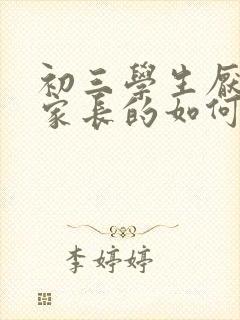 初三學生厭
家長的如何
李婷婷